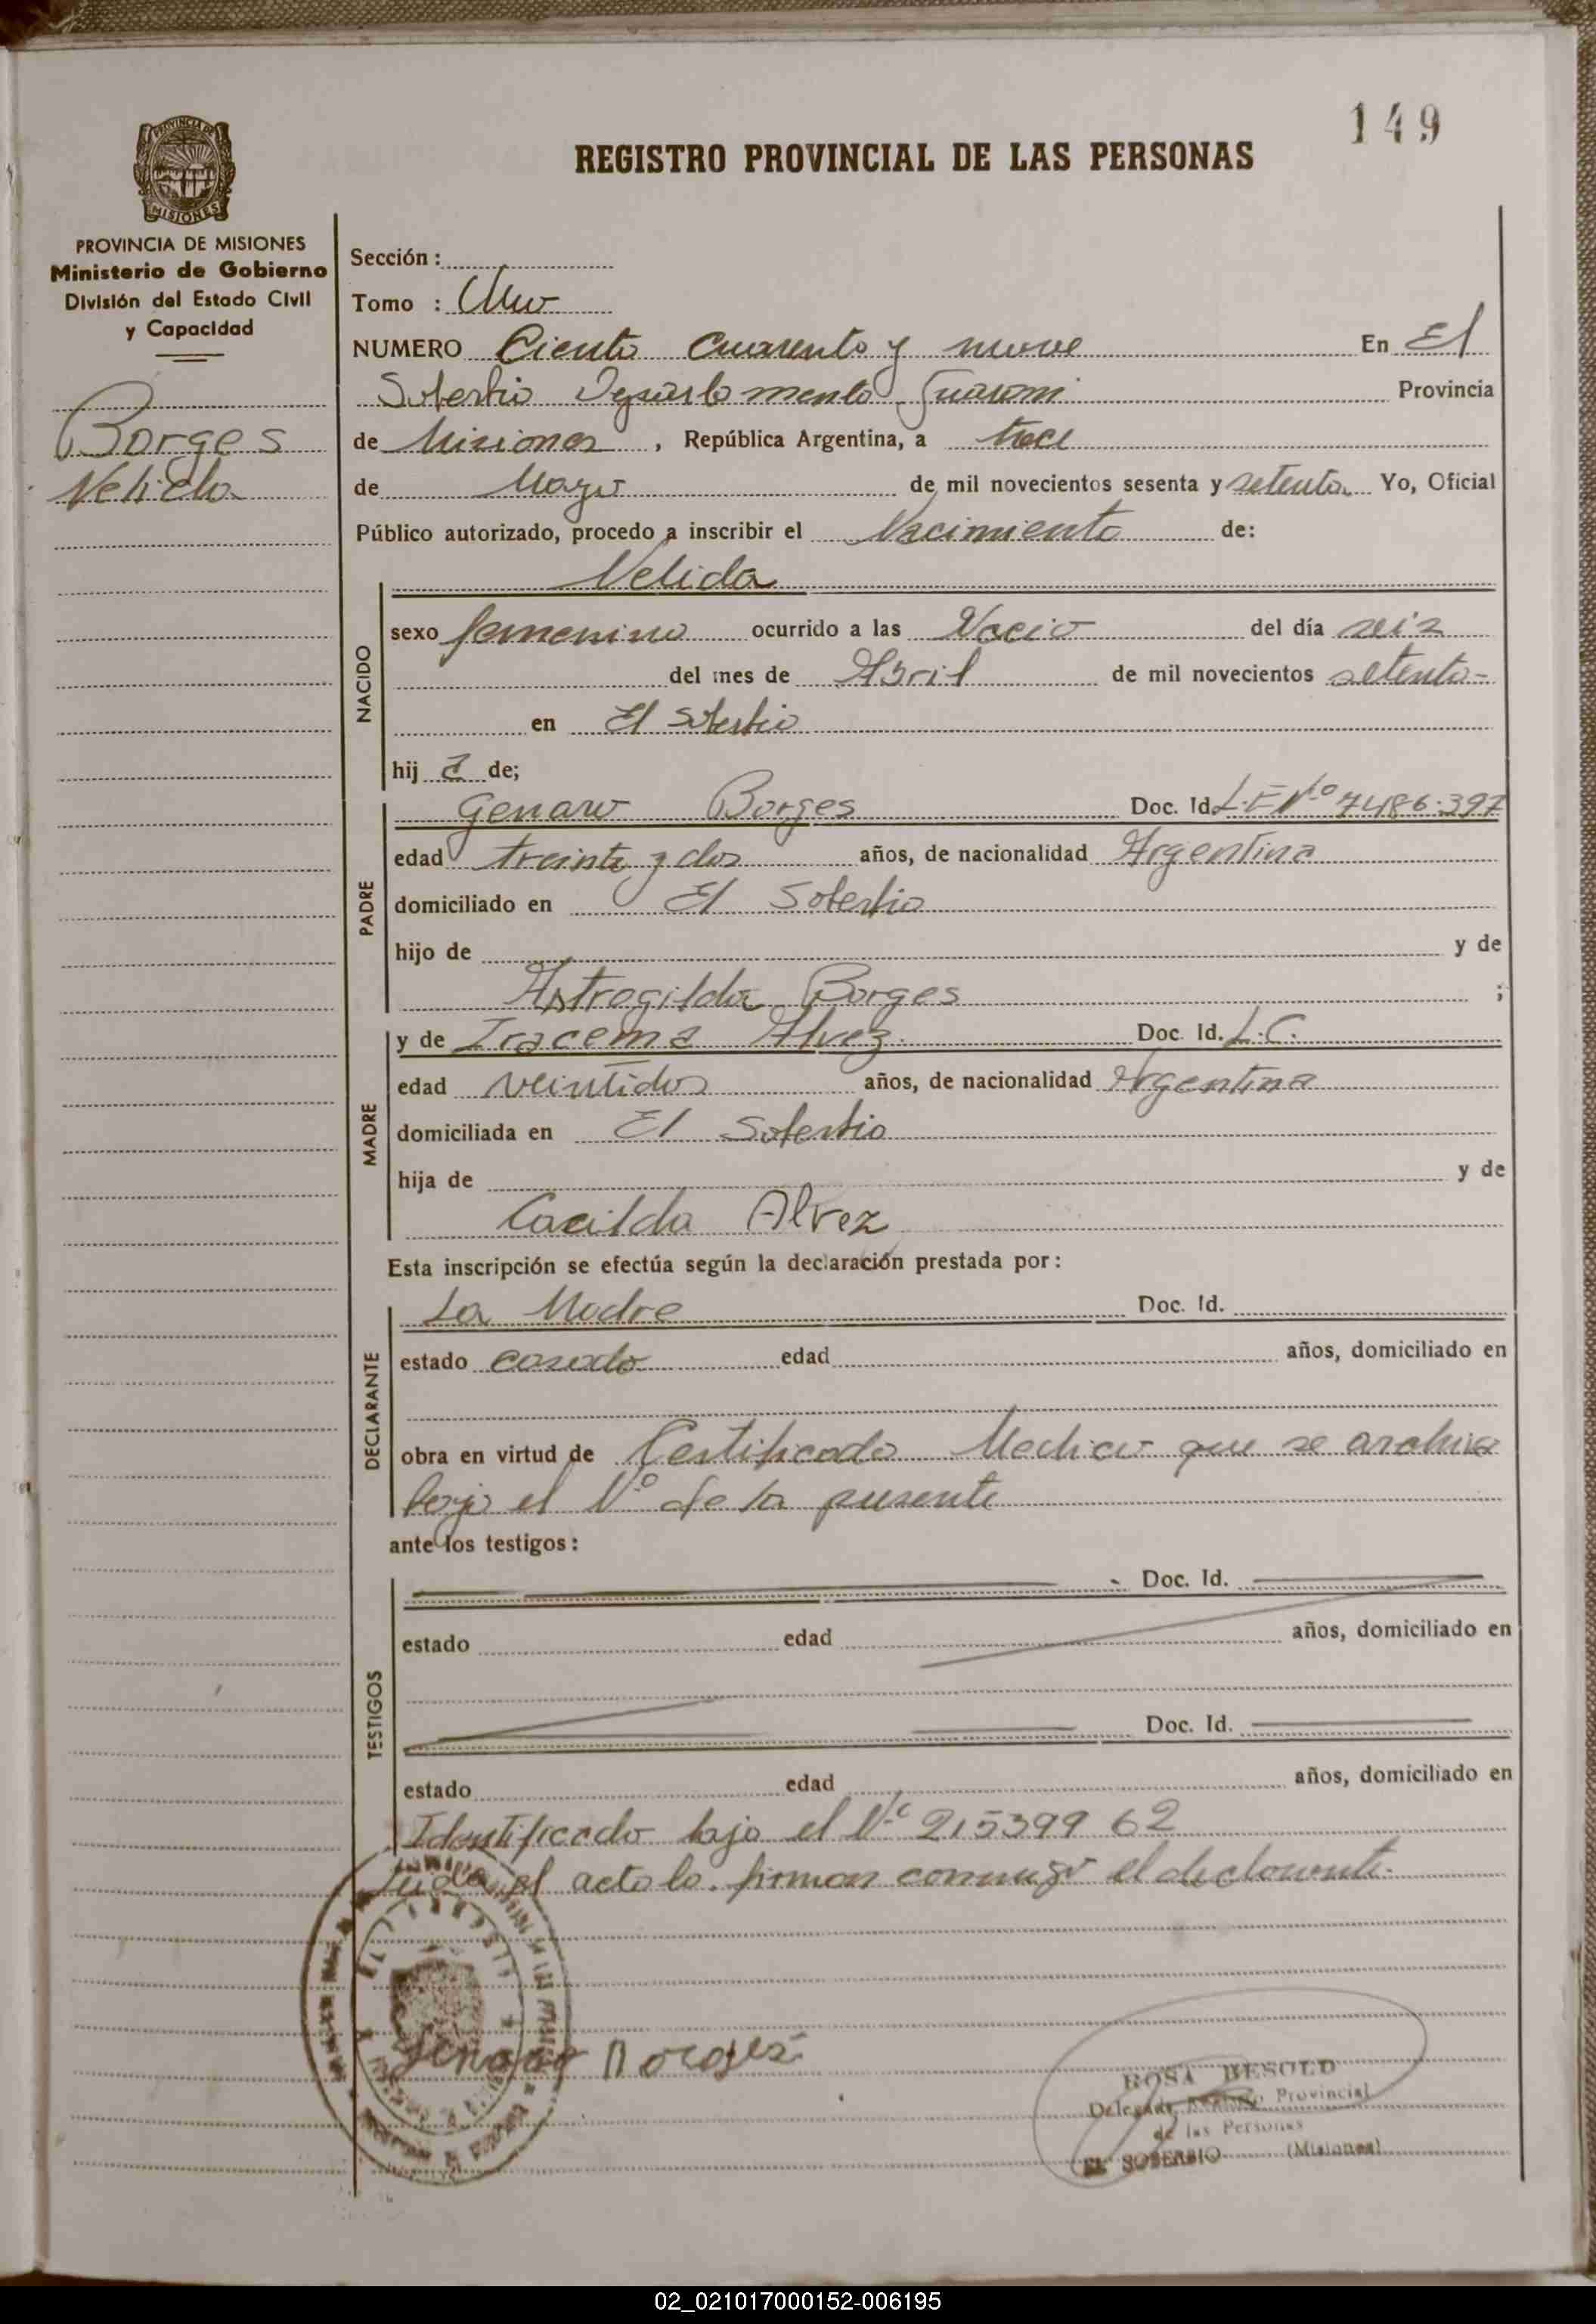 149
REGISTRO PROVINCIAL DE LAS PERSONAS
PROVINCIA DE MISIONES
MISIONES
PROVINCIA DE MISIONES
Ministerio de Gobierno
División del Estado Civil
y Capacidad
Borges
Nelida
Sección :
Tomo : Uno
NUMERO Ciento Cuarenta y nueve En El
Soberbio Departamento Guarani Provincia
de Misiones , República Argentina, a trece
de Mayo de mil novecientos sesenta y setenta Yo, Oficial
Público autorizado, procedo a inscribir el Nacimiento de:
Nelida
NACIDO
sexo femenino ocurrido a las Nacio del día seis
del mes de Abril de mil novecientos setenta-
en El Soberbio
hij a de;
PADRE
Genaro Borges Doc. Id. L.E Nº 7486.397
edad treinta y dos años, de nacionalidad Argentina
domiciliado en El Soberbio
hijo de y de
Astrogilda Borges ;
MADRE
y de Iracema Alvez. Doc. Id. L.C.
edad veintidos años, de nacionalidad Argentina
domiciliada en El Soberbio
hija de y de
Alvez
Esta inscripción se efectúa según la declaración prestada por :
DECLARANTE
La Madre Doc. Id.
estado casado edad años, domiciliado en
obra en virtud de Certificado Medico que se archiva
bajo el Nº de la presente
ante los testigos :
TESTIGOS
Doc. Id.
estado edad años, domiciliado en
Doc. Id.
estado edad años, domiciliado en
Identificado bajo el Nº 215399 62
el acto lo firman conmigo el declarante.
Genaro Borges
ROSA BESOLD
Delegada Registro Provincial
de las Personas
EL SOBERBIO (Misiones)
02_021017000152-006195